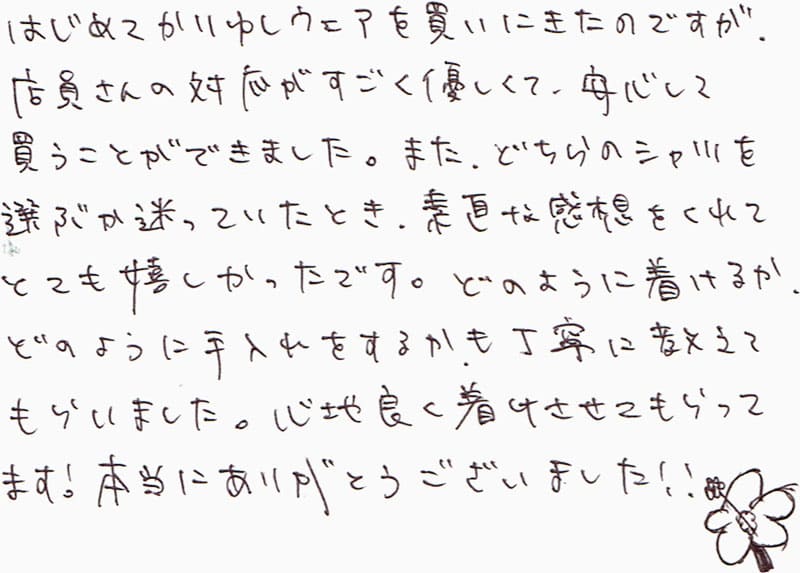 はじめてかりゆしウェアを買いにきたのですが、
店員さんの対応がすごく優しくて、安心して
買うことができました。また、どちらのシャツを
選ぶか迷っていたとき、素直な感想をくれて
とても嬉しかったです。どのように着けるか、
どのように手入れをするかも丁寧に教えて
もらいました。心地良く着けさせてもらって
ます!本当にありがとうございました!!